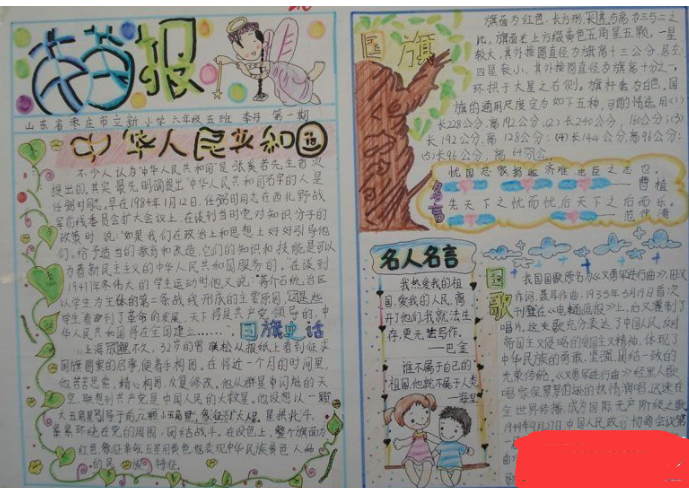 苗苗报
山东省枣庄市立新小学六年级五班 第一期
中华人民共和国
不少人认为"中华人民共和国"是张奚若先生首次
提出的,其实最先明确提出"中华人民共和国"名字的人是
任弼时
军前线委员会扩大会议上,在谈到当时党对知识分子的
政策时说:"如果我们在政治上和思想上好好引导他
们,给予适当的教育和改造,它们的知识和技能是可以
为着新民主主义的中华人民共和国服务的。在谈到
伟大的学生运动时他又说:
以学生为主体的第二条战线形成的主要原因,
学生看到了革命的发展,天下将是共产党领导的,中
华人民共和国将在全国建立……"
国旗史话
上海 不久,32岁的曾联松从报纸上看到征求
国旗图案的启事,便着手构图。在将近一个月的时间里,
他苦苦思索,精心构图,反复修改。他从群星中闪船的天
空,联想到共产党是中国人民的大救星,他设想以一颗
大五角星引导于前,
紧紧环绕在党的周围,团结战斗。在设色上,整个旗面为
红色,象征革命,五星用黄色,
的民族特征
国旗
旗面为红色,长方形,长与高为三与二之
比,旗面左上方缀黄色五角星五颗。一星
较大,其外接圆直径为旗高十分之三,居左;
四星较小,其外接圆直径为旗高十分之一,
环拱于大星之右侧。旗杆套为白色,国
旗的通用尺度定为如下五种,
长228公分,高192公分;(2)长240公分, 160公分;(3)
长192公分,高128公分;(4)长144公分,高96公分;
(5)长96公分,高64公分。
名言
忧国忘家,捐躯济难,忠臣之志也。
曹植
先天下之忧而忧,后天下之后而乐。
范仲淹
名人名言
我热爱我的祖
国,爱我的人民,离
开了他们我就法生
存,更无法写作。
—巴金
谁不属于自己的
祖国,他就不属于人类
国歌
我国国歌原名为《义勇军进行曲》
作词,聂耳作曲。1935年5月19日首次
刊登在《电 》上,后又灌制了
唱片,这支歌充分表达了中国人民,反对
帝国主义侵略的爱国主义精神,体现了
中华民族的勇敢、坚强、团结一致的
光荣传统。《义勇军进行曲》经黑人歌
唱家保罗罗伯逊的热情演唱,迅速在
全世界传播,成为国际无产阶级之歌
1949年9月27日中国人民政治协商会议第